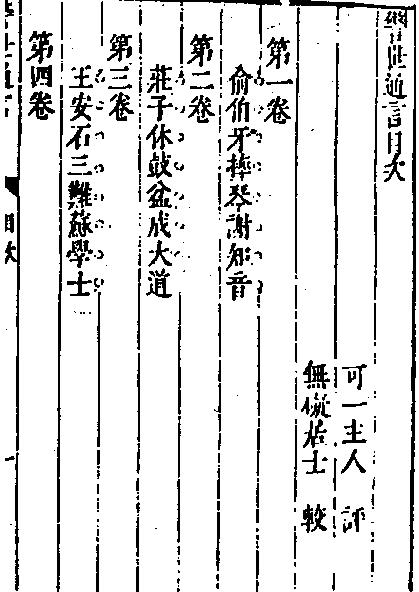 警世通言目次
可一主人 評
無礙居士 較
第一卷
俞伯牙摔琴謝知音
第二卷
莊子休鼓盆成大道
第三卷
王安石三難蘇學士
第四卷
世通言 目次 一